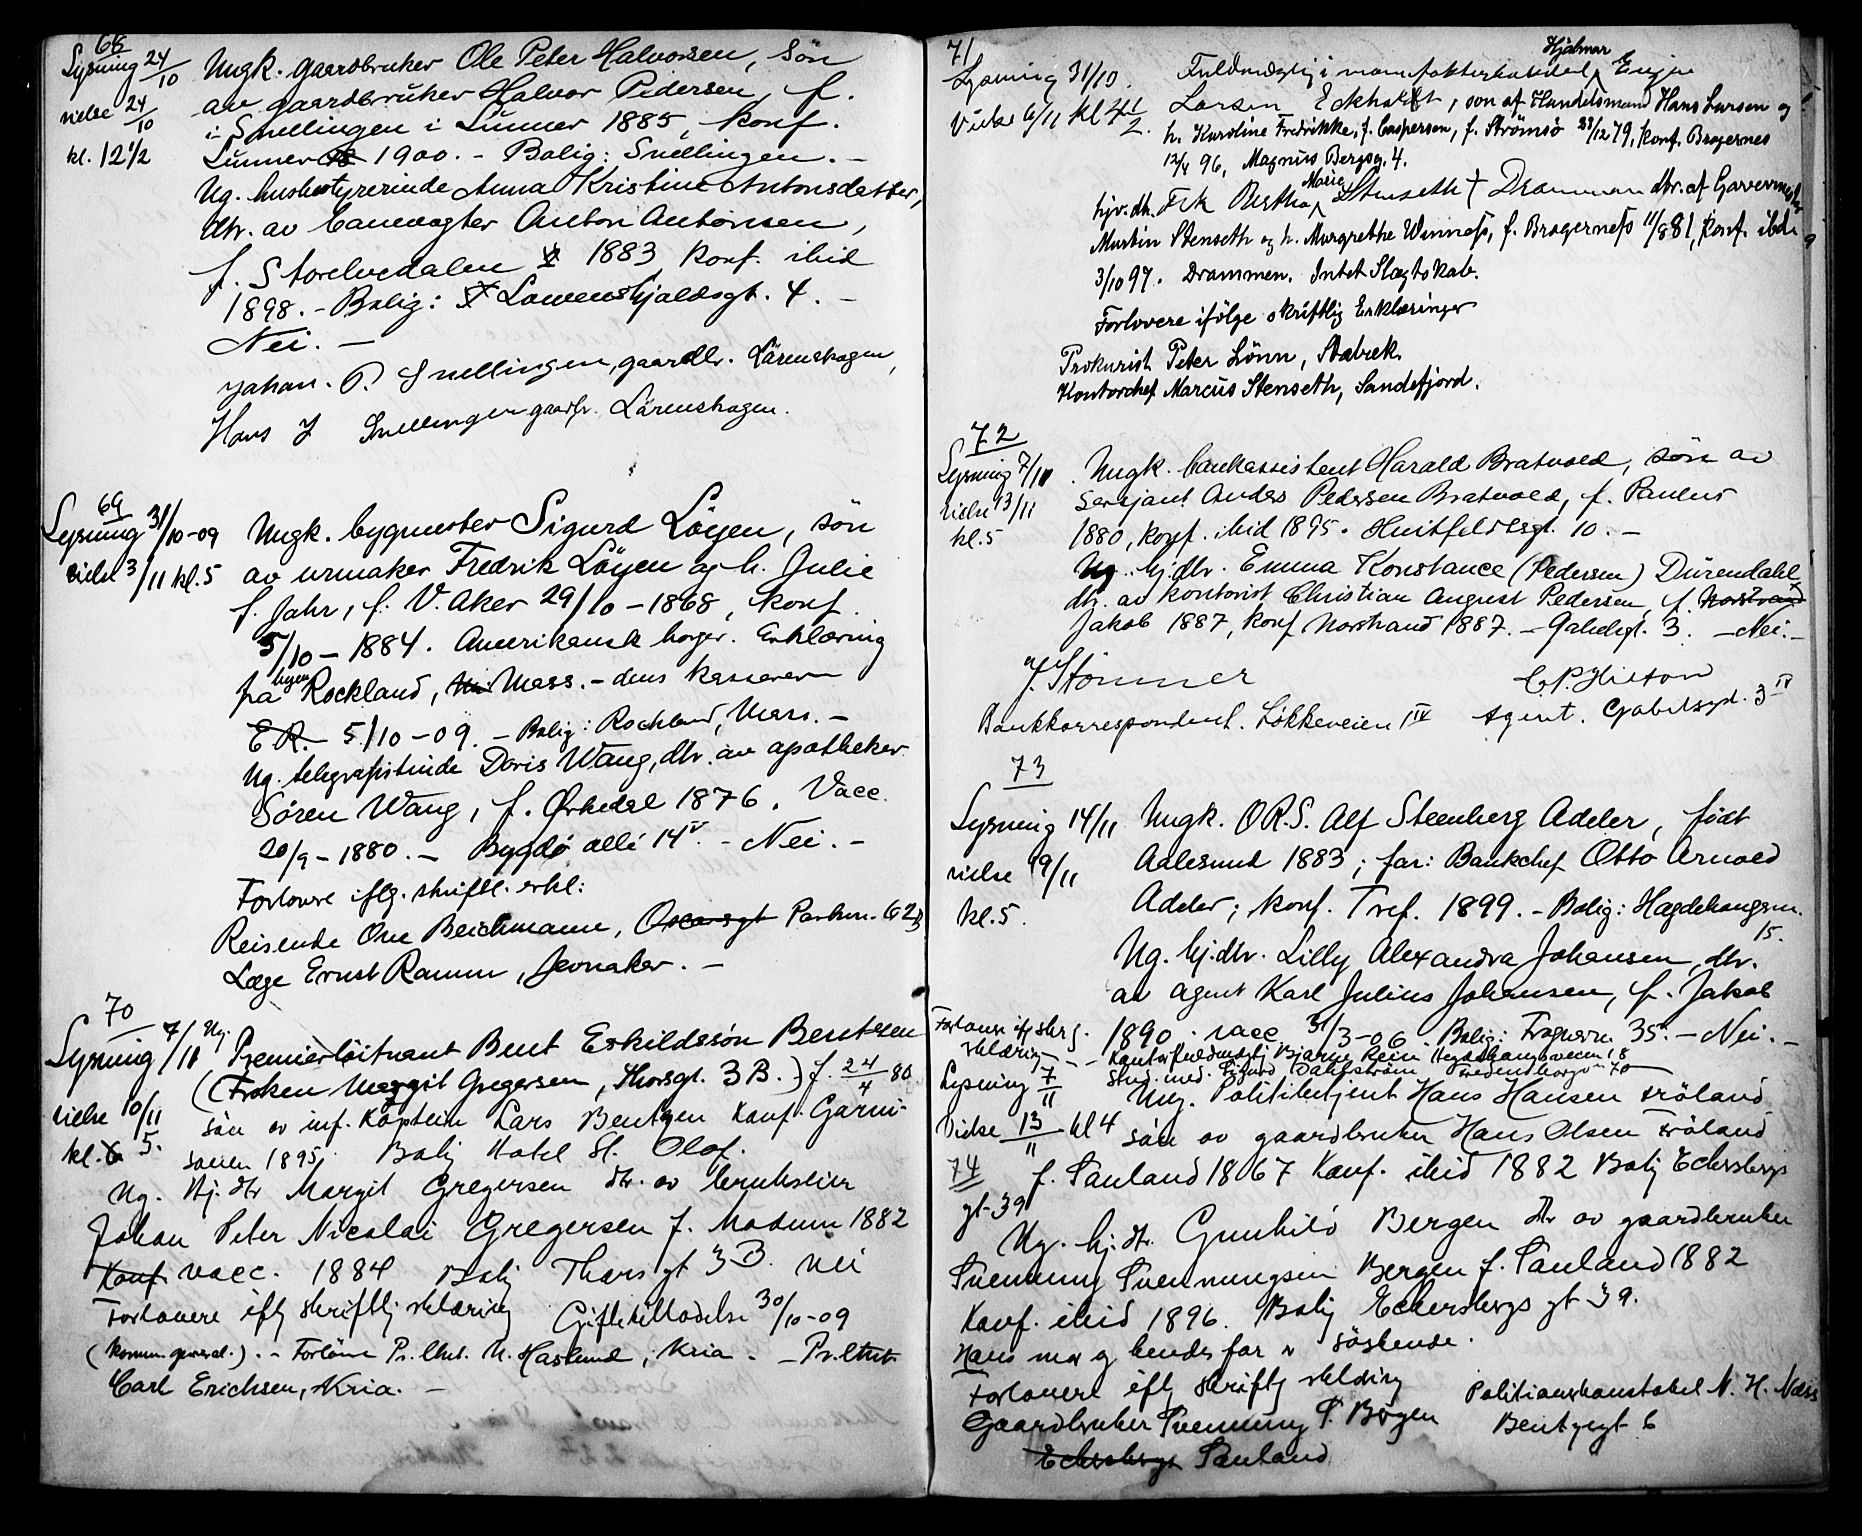 68
Lysning 24/10
vielse 24/10
kl. 12 1/2
Ungk. gaardbruker Ole Peter Halvorsen, søn
av gaardbruker Halvor Pedersen, f.
i Snellingen i Lunner 1885, konf.
Lunner 1900. - Bolig: Snellingen. -
Ug. husbestyrerinde Anna Kristine Antonsdatter,
dtr. av banevogter Anton Antonsen,
f. Storelvedalen 1883 konf. ibid
1898. - Bolig: Løvenskjoldsgt. 4. -
Nei. -
Johan. P. Snellingen, gaardbr. Lärenskogen,
Hans J Snellingen gaardbr. Lärenskogen.
69
Lysning 31/10-09
vielse 3/11 kl. 5
Ungk. bygmester Sigurd Löyen, sön
av urmaker Fredrik Löyen og h. Julie
f. Jahr, f. V. Aker 29/10 - 1868, konf.
5/10 - 1884. Amerikansk borger. Erklæring
fra byen Rockland, Mass. - dens kasserer
E.R. 5/10 - 09. - Bolig: Rockland, Mass. -
Ug. telegrafistinde Doris Wang, dtr. av apotheker
Sören Wang, f. Orkedal 1876. Vacc.
20/9 - 1880. - Bygdö allé 14 V. - Nei. -
Forlovere iflg. skriftl. erkl:
Reisende Ove Beichmann, Oscarsgt Parkv. 62
Læge Ernst Ramm, Jevnaker. -
70
Lysning 7/11
vielse 10/11
kl. 5.
Ug. Premierlöitnant Bent Eskildssön Bentzen
(Froken Margit Gregersen, Thorsgt. 3 B.) f. 24/4 80
sön av inf. Kaptein Lars Bentzen Konf. Garni-
sonen 1895. Bolig Hotel St. Olaf.
Ug. Hj. dtr Margit Gregersen dtr. av brukseier
Johan Peter Nicolai Gregersen f. Modum 1882
Konf vacc. 1884 Bolig Thors gt 3 B. nei
Forlovere iflg skriftlig erklæring Giftetilladelse 30/10-09
(Komm. general.). - Forlovere Pr. ltnt. N. Haslund, Kria. - Pr. ltnt.
Carl Erichsen, Kria. -
71
Lysning 31/10.
Vielse 6/11 kl 4 1/2.
Fuldmægtig i manufakturhandel Hjalmar Eugen
Larsen Eckhardt, søn af Handelsmand Hans Larsen og
h. Karoline Fredrikke, f. Caspersen, f. Strömsö 23/12 79, konf. Bragernes
12/4 96, Magnus Bergsg. 4.
hjv. dtr. Frk Bertha Marie Stenseth + Drammen dtr. af Garvermester
Martin Stenseth og h. Margrethe Winness, f. Bragerness 11/8 81, konf. ibd.
3/10 97. Drammen. Intet Slægtskab.
Forlovere ifölge skriftlig Erklæringer
Prokurist Peter Lönn, Stabæk.
Kontorchef Marcus Stenseth, Sandefjord.
72
Lysning 7/11
vielse 13/11
kl. 5
Ungk. bankassistent Harald Bratvold, sön av
Sersjant Anders Pedersen Bratvold, f. Paulus
1880, konf. ibid 1895. Huitfeldtsgt. 10. -
Ug. hj. dtr. Emma Konstance (Pedersen) Dürendahl
dtr. av kontorist Christian August Pedersen, f. Nordstrand
Jakob 1887, konf Nordstrand 1887. - Gabelsgt. 3. - Nei. -
J. Störmer
C. P. Hilton
Bankkorrespondent. Lökkeveien 1 IV Agent. Gabelsgd. 3 IV
73
Lysning 14/11
vielse 19/11
kl. 5.
Ungk. O.R.S. Alf Steenberg Adeler, födt
Aalesund 1883; far: Bankchef Otto Arnold
Adeler; konf. Tref. 1899. - Bolig: Hegdehaugsvn.
15.
Ug. hj. dtr. Lilly Alexandra Johansen, dtr.
av agent Karl Julius Johansen, f. Jakob
1890. vacc 31/3-06. Bolig: Frognervn. 35. - Nei. -
Forlovere iflg skrftlg.
erklæring -- Kontorfuldmægtig Bjarne Rein Hegdehaugsveien 18
Stud. med. Sigurd Dahlström Fredensborgv. 70
Lysning 7/11
Vielse 13/11 kl 4
74
Ung. Politibetjent Hans Hansen Fröland
sön av gaardbruker Hans Olsen Fröland
f. Sauland 1867 Konf. ibid 1882 Bolig Eckersbergs
gt. 39
Ug. hj. dtr. Gunhild Bergen dtr av gaardbruker
Svennung Svennungsen Bergen f. Sauland 1882
Konf. ibid 1896. Bolig Eckersbergs gt 39.
Hans mor og hendes far er söskende.
Forlovere iflg skriftlg erklæring
Gaardbruker Svennung S. Bergen
Eckersbergs Sauland
Politioverkonstabel N. H. Næss
Bentzegt 6